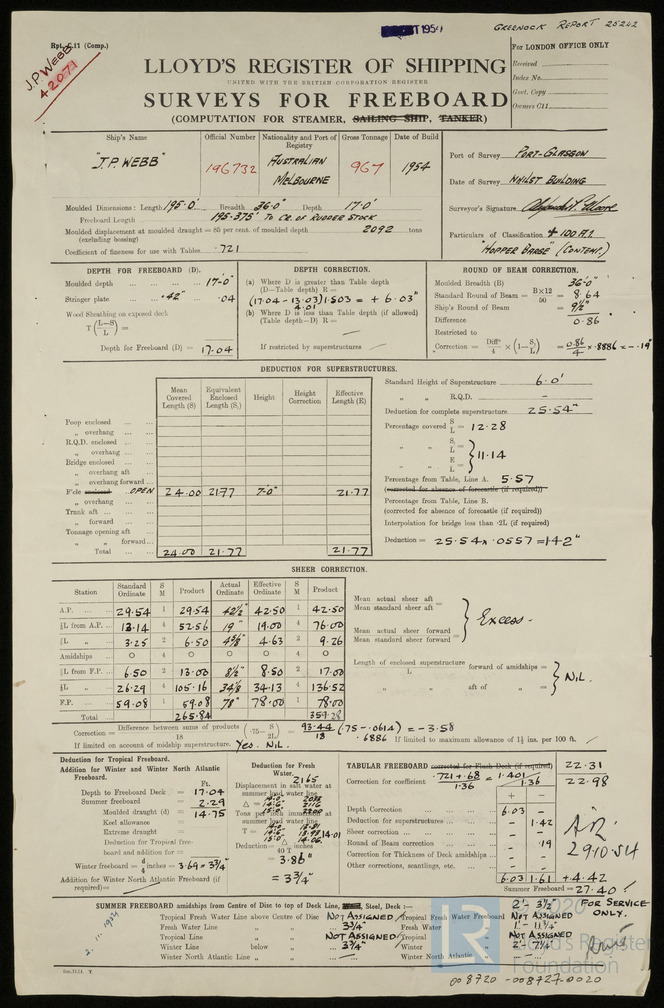 GREENOCK REPORT 25242
OCT 1954
Rpt. C.11 (Comp.)
J.P. WEBB
42071
For LONDON OFFICE ONLY
Received
Index No.
Govt. Copy
Owners C11
LLOYD'S REGISTER OF SHIPPING
UNITED WITH THE BRITISH CORPORATION REGISTER
SURVEYS FOR FREEBOARD
(COMPUTATION FOR STEAMER, SAILING SHIP, TANKER)
Ship's Name Official Number Nationality and Port of Registry Gross Tonnage Date of Build
"J.P. WEBB" 196732 AUSTRALIAN MELBOURNE 967 1954
Port of Survey PORT-GLASGOW
Date of Survey WHILST BUILDING
Surveyor's Signature
Particulars of Classification + 100 A1
"HOPPER BARGE" (CONTEMP.)
Moulded Dimensions: Length 195.0' Breadth 36.0' Depth 17.0'
Freeboard Length 195.375' TO CR. OF RUDDER STOCK
Moulded displacement at moulded draught = 85 per cent. of moulded depth 2092 tons
(excluding bossing)
Coefficient of fineness for use with Tables .721
DEPTH FOR FREEBOARD (D).
Moulded depth 17.0"
Stringer plate .42" .04
Wood Sheathing on exposed deck
T (L-S / L) =
Depth for Freeboard (D) = 17.04
DEPTH CORRECTION.
(a) Where D is greater than Table depth
(D-Table depth) R =
(17.04 - 13.03) 1.503 = + 6.03"
4.01
(b) Where D is less than Table depth (if allowed)
(Table depth-D) R =
If restricted by superstructures
ROUND OF BEAM CORRECTION.
Moulded Breadth (B) 36.0"
Standard Round of Beam = B×12 / 50 = 8.64
Ship's Round of Beam = 9½"
Difference 0.86
Restricted to
Correction = Diffce / 4 × (1 - S₁ / L) = 0.86 / 4 × .8886 = -.19"
DEDUCTION FOR SUPERSTRUCTURES.
Mean Covered Length (S) Equivalent Enclosed Length (S₁) Height Height Correction Effective Length (E)
Poop enclosed
„ overhang
R.Q.D. enclosed
„ overhang
Bridge enclosed
„ overhang aft
„ overhang forward
F'cle enclosed OPEN 24.00 21.77 7.0" 21.77
„ overhang
Trunk aft
„ forward
Tonnage opening aft
„ „ forward
Total 24.00 21.77 21.77
Standard Height of Superstructure 6.0'
„ „ R.Q.D. -
Deduction for complete superstructure 25.54"
Percentage covered S / L = 12.28
„ „ S₁ / L =
„ „ E / L = } 11.14
Percentage from Table, Line A. 5.57
(corrected for absence of forecastle (if required))
Percentage from Table, Line B.
(corrected for absence of forecastle (if required)
Interpolation for bridge less than .2L (if required)
Deduction = 25.54 × .0557 = 1.42"
SHEER CORRECTION.
Station Standard Ordinate S M Product Actual Ordinate Effective Ordinate S M Product
A.P. 29.54 1 29.54 42½" 42.50 1 42.50
⅙L from A.P. 13.14 4 52.56 19" 19.00 4 76.00
⅓L „ 3.25 2 6.50 4⅝" 4.63 2 9.26
Amidships O 4 O O O 4 O
⅓L from F.P. 6.50 2 13.00 8½" 8.50 2 17.00
⅙L „ 26.29 4 105.16 34⅛ 34.13 4 136.52
F.P. 59.08 1 59.08 78" 78.00 1 78.00
Total 265.84 359.28
Mean actual sheer aft
Mean standard sheer aft =
Mean actual sheer forward
Mean standard sheer forward = } Excess.
Length of enclosed superstructure forward of amidships =
L
„ „ aft of „ = } NIL.
Correction = Difference between sums of products / 18 (.75 - S / 2L) = 93.44 / 18 (.75 - .0614) = - 3.58
.6886
If limited on account of midship superstructure. Yes. NIL. If limited to maximum allowance of 1½ ins. per 100 ft.
Deduction for Tropical Freeboard.
Addition for Winter and Winter North Atlantic Freeboard.
Ft.
Depth to Freeboard Deck = 17.04
Summer freeboard = 2.29
Moulded draught (d) = 14.75
Keel allowance
Extreme draught =
Deduction for Tropical freeboard and addition for =
Winter freeboard = d / 4 inches = 3.69 = 3¾"
Addition for Winter North Atlantic Freeboard (if required) =
Deduction for Fresh Water.
2165
Displacement in salt water at summer load water line
Δ = 14.6" 2116
Tons per inch immersion at summer load water line
T = 14.01
Deduction = Δ / 40 T inches
= 3.86"
= 3¾"
TABULAR FREEBOARD corrected for Flush Deck (if required) 22.31
Correction for coefficient .721 + .68 / 1.36 = 1.401 / 1.36 22.98
+ -
Depth Correction 6.03 -
Deduction for superstructures - 1.42
Sheer correction - -
Round of Beam correction - .19
Correction for Thickness of Deck amidships - -
Other corrections, scantlings, etc. - -
6.03 1.61 + 4.42
Summer Freeboard = 27.40
29.10.54
SUMMER FREEBOARD amidships from Centre of Disc to top of Deck Line, Steel, Deck :— 2'- 3½" FOR SERVICE ONLY.
Tropical Fresh Water Line above Centre of Disc NOT ASSIGNED Tropical Fresh Water Freeboard NOT ASSIGNED
Fresh Water Line „ „ 3¾" Fresh Water „ 1'- 11¾"
Tropical Line „ „ NOT ASSIGNED Tropical „ NOT ASSIGNED
Winter Line below „ „ 3¾" Winter „ 2'- 7¼"
Winter North Atlantic Line „ „ - Winter North Atlantic „ -
2.11.1954
LR
2020
Lloyd's Register
Foundation
008720-008727-0020